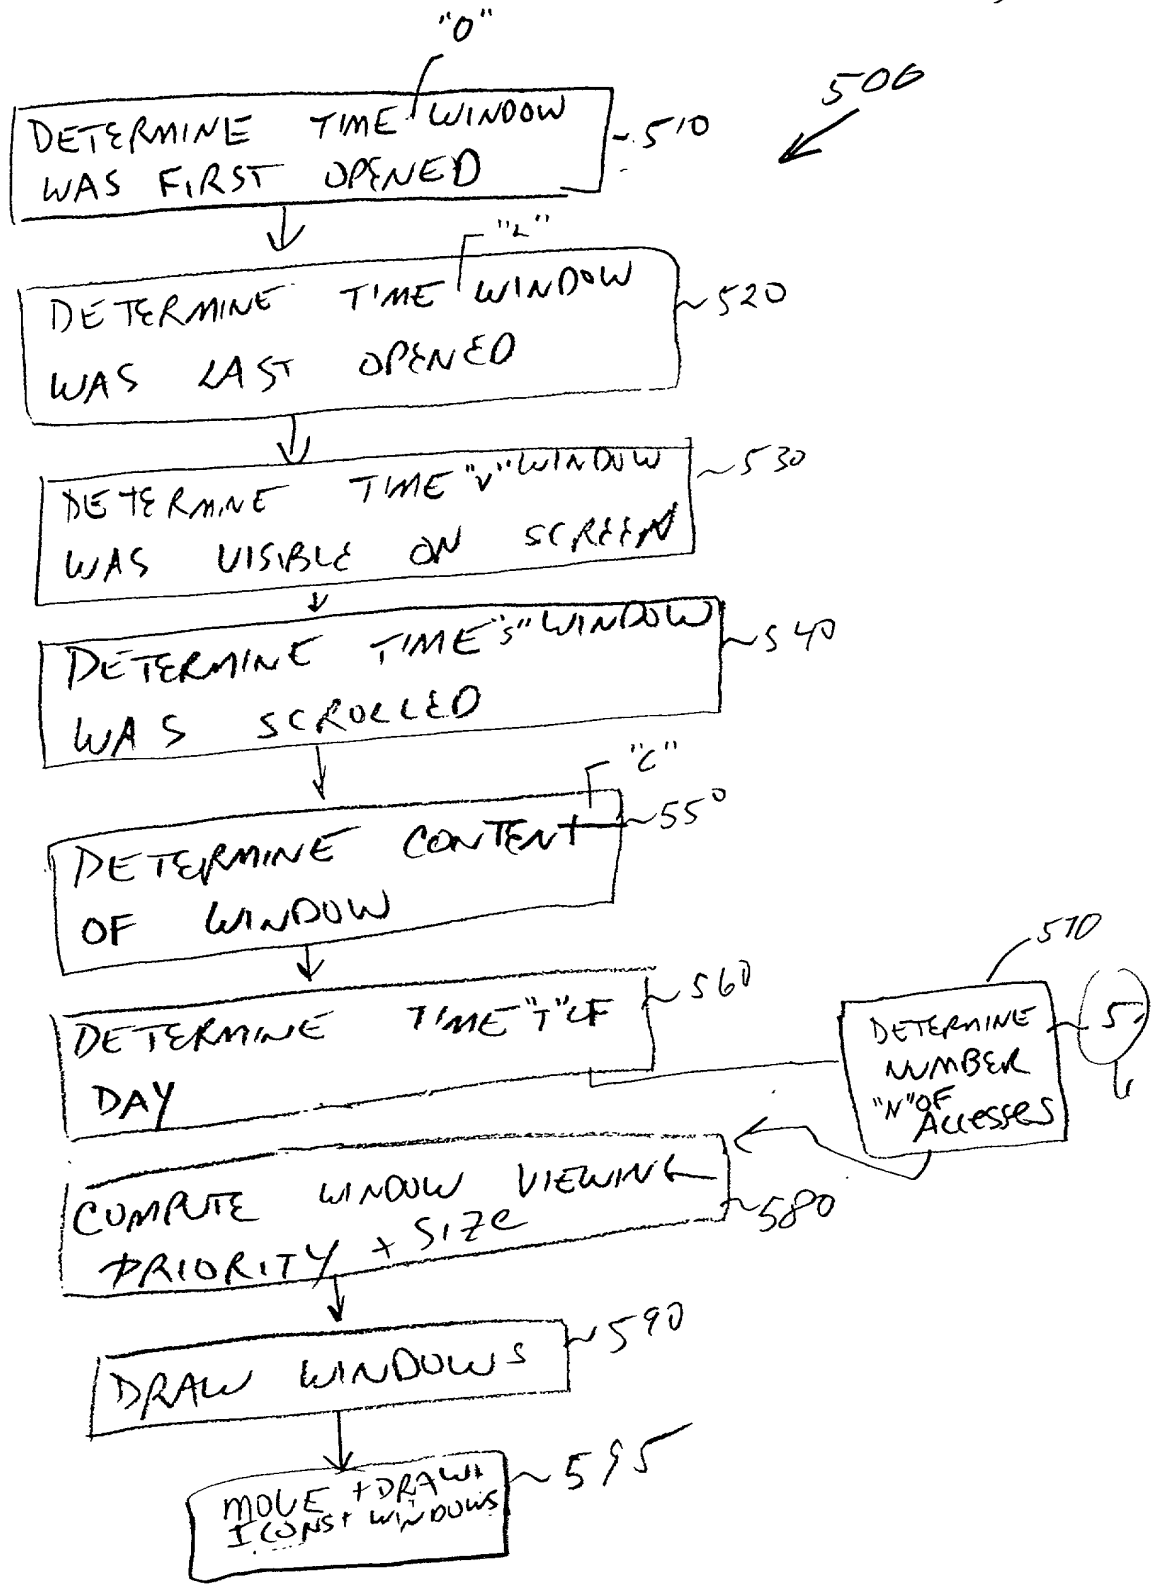 "O"
500
DETERMINE TIME WINDOW
WAS FIRST OPENED
510
"L"
DETERMINE TIME WINDOW
WAS LAST OPENED
520
DETERMINE TIME "V" WINDOW
WAS VISIBLE ON SCREEN
530
DETERMINE TIME "S" WINDOW
WAS SCROLLED
540
"C"
DETERMINE CONTENT
OF WINDOW
550
DETERMINE TIME "T" OF
DAY
560
570
DETERMINE
NUMBER
"N" OF
ACCESSES
5
COMPUTE WINDOW VIEWING
PRIORITY + SIZE
580
DRAW WINDOWS
590
MOVE + DRAW
ICONS + WINDOWS
595